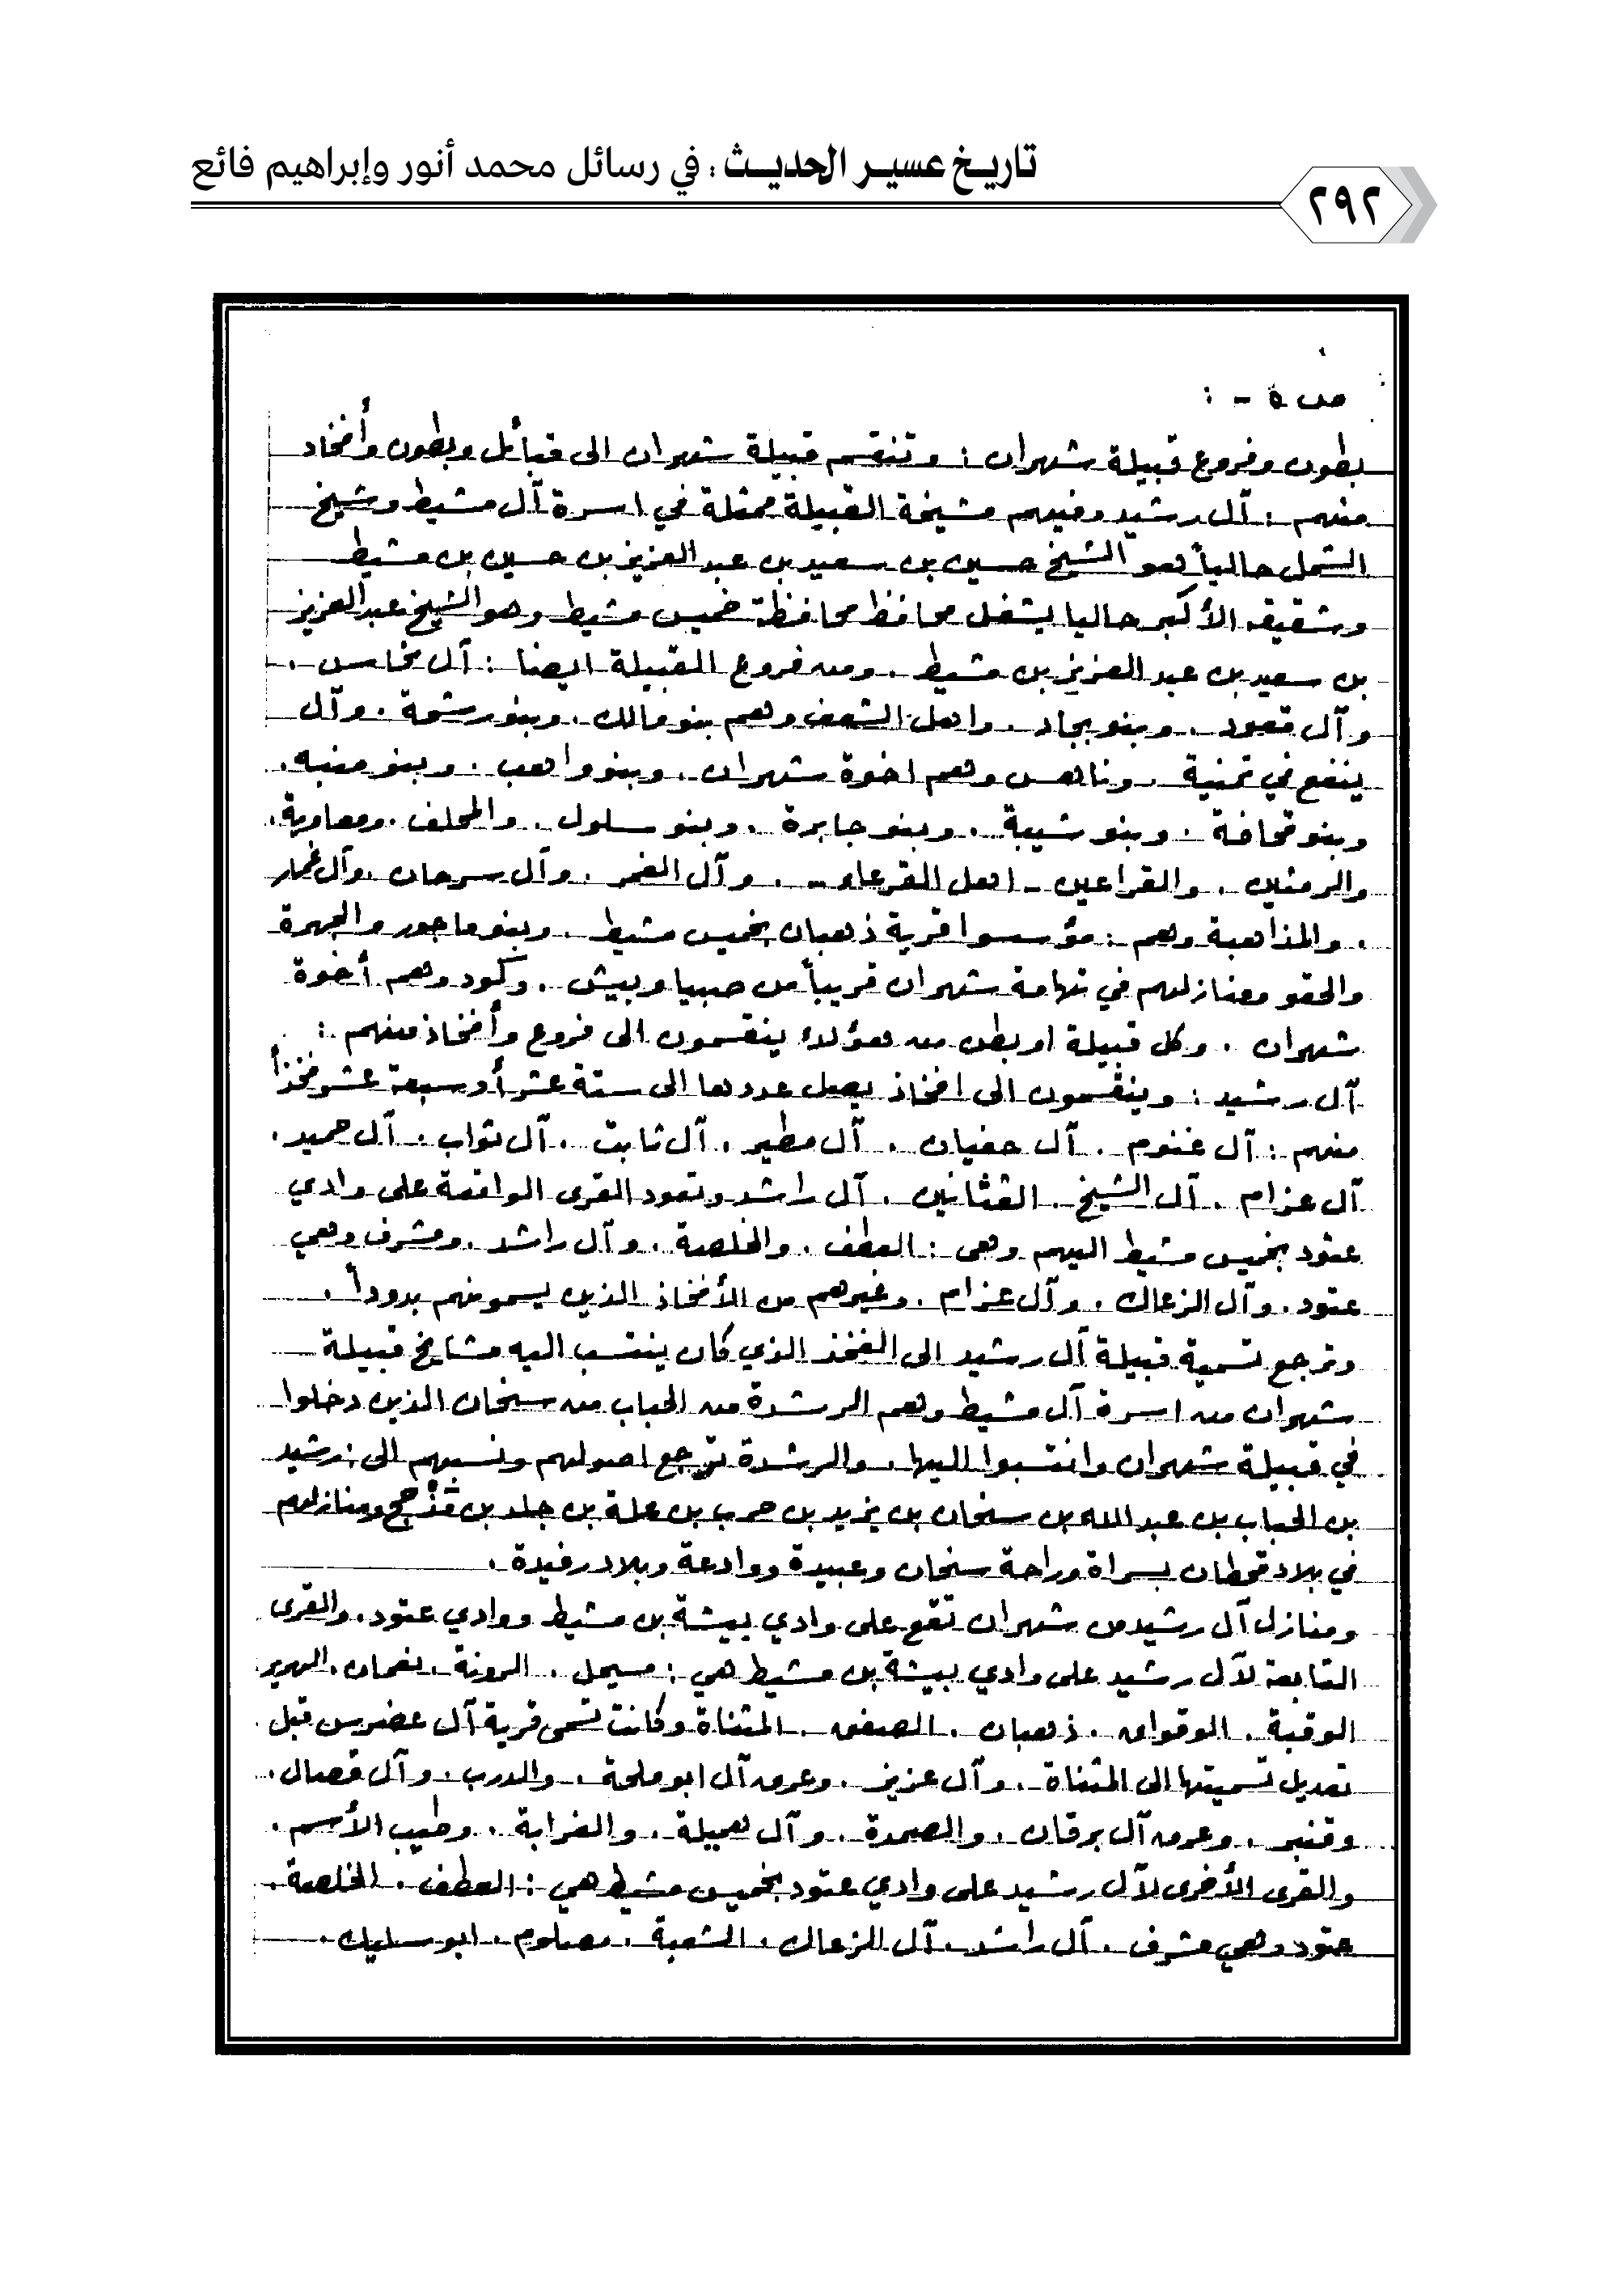 تاريخ عسير الحديث : في رسائل محمد أنور وإبراهيم فائع
٢٩٢
ص ٥ - :
بطون وفروع قبيلة شهران : وتنقسم قبيلة شهران الى قبائل وبطون وأفخاد
منهم : آل رشيد وفيهم مشيخة القبيلة ممثلة في اسرة آل مشيط وشيخ
الشمل حالياً هو الشيخ حسين بن سعيد بن عبد العزيز بن حسين بن مشيط
وشقيقه الأكبر حاليا يشغل محافظ محافظة خميس مشيط وهو الشيخ عبدالعزيز
بن سعيد بن عبد العزيز بن مشيط . ومن فروع القبيلة ايضا : آل مخاسن .
وآل قعود . وبنو بجاد . واهل الشعف وهم بنو مالك . وبنو رشمة . وآل
ينفع في تمنية . وناهس وهم اخوة شهران . وبنو واهب . وبنو منبه .
وبنو قحافة . وبنو شيبة . وبنو جابرة . وبنو سلول . والمحلف . ومعاوية .
والرمثين . والقراعين - اهل القرعاء - . وآل الغمر . وآل سرحان . وآل غمار
. والمذاهبة وهم : مؤسسوا قرية ذهبان بخميس مشيط . وبنو ماجور والجهرة
والحقو ومنازلهم في تهامة شهران قريباً من صبيا وبيش . وكود وهم أخوة
شهران . وكل قبيلة او بطن من هؤلاء ينقسمون الى فروع وأفخاذ منهم :
آل رشيد : وينقسمون الى افخاذ يصل عددها الى ستة عشر أو سبعة عشر فخذاً
منهم : آل غنوم . آل حفيان . آل مطير . آل ثابت . آل ثواب . آل حميد .
آل عزام . آل الشيخ . القثانين . آل راشد وتعود القرى الواقعة على وادي
عتود بخميس مشيط اليهم وهى : العطف . والخلصة . وآل راشد . ومشرف وهي
عتود . وآل الزعاك . وآل عزام . وغيرهم من الأفخاذ الذين يسمونهم بدوداً .
وترجع تسمية قبيلة آل رشيد الى الفخذ الذي كان ينتسب اليه مشايخ قبيلة
شهران من اسرة آل مشيط وهم الرشدة من الحباب من سنحان الذين دخلوا
في قبيلة شهران وانتسبوا اليها . والرشدة ترجع اصولهم ونسبهم الى : رشيد
بن الحباب بن عبد الله بن سنحان بن يزيد بن حرب بن علة بن جلد بن مَذْحج ومنازلهم
في بلاد قحطان بسراة وراحة سنحان وعبيدة ووادعة وبلاد رفيدة .
ومنازل آل رشيد من شهران تقع على وادي بيشة بن مشيط ووادي عتود . والقرى
التابعة لآل رشيد على وادي بيشة بن مشيط هي : مسيحل . المونة . نعمان . الهرير
الوقبة . الوقواق . ذهبان . الصفق . المثناة وكانت تسمى قرية آل عضرس قبل
تعديل تسميتها الى المثناة . وآل عزيز . وعرق آل ابو ملحة . والدرب . وآل قصال .
وقنبر . وعرق آل برقان . والصمدة . وآل هميلة . والغرابة . وطيب الأسم .
والقرى الأخرى لآل رشيد على وادي عتود بخميس مشيط هي : العطف . الخلصة .
عتود وهي مشرف . آل راشد . آل الزعاك . الشعبة . مصلوم . ابو سليك .